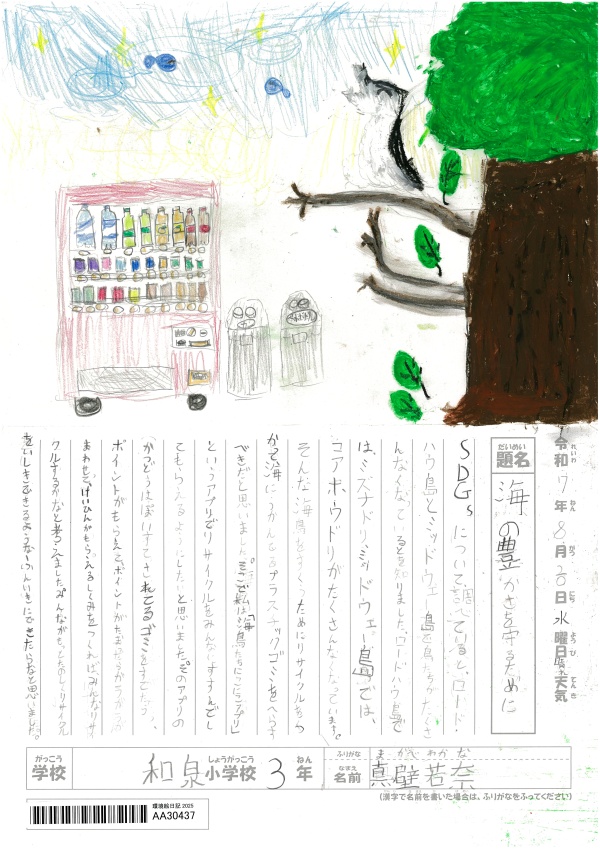 令和7年8月20日水曜日 晴れ天気
れいわ ねん がつ にち ようび てんき
だいめい
題名 海の豊かさを守るために
SDGsについて調べていると、ロード・
ハウ島とミッドウェー島で海鳥たちがたくさ
んなくなっていると知りました。ロードハウ島で
は、ミズナギドリ、ミッドウェー島では、
コアホウドリがたくさんなくなっています。
そんな海鳥をすくうためにリサイクルをつ
かって海にうかんでるプラスチックゴミをへらす
べきだと思いました。そこで私は「海鳥たちにっこにこアプリ」
というアプリでリサイクルをみんなにすすんでし
てもらえるようにしたいと思いました。そのアプリの
かつどうはぽいすてされてるゴミをすてたら、
ポイントがもらえて、ポイントがたまったら
あわせて、けいひんがもらえるしくみをつくればみんなリサイ
クルするかなと考えました。みんながもっとたのしくリサイクル
をいしきできるようなふんいきにできたらなと思いました。
がっこう しょうがっこう ねん
学校 和泉小学校 3年
ふりがな まかべ わかな
なまえ
名前 真壁若奈
(漢字で名前を書いた場合は、ふりがなをふってください)
環境絵日記 2025
AA30437